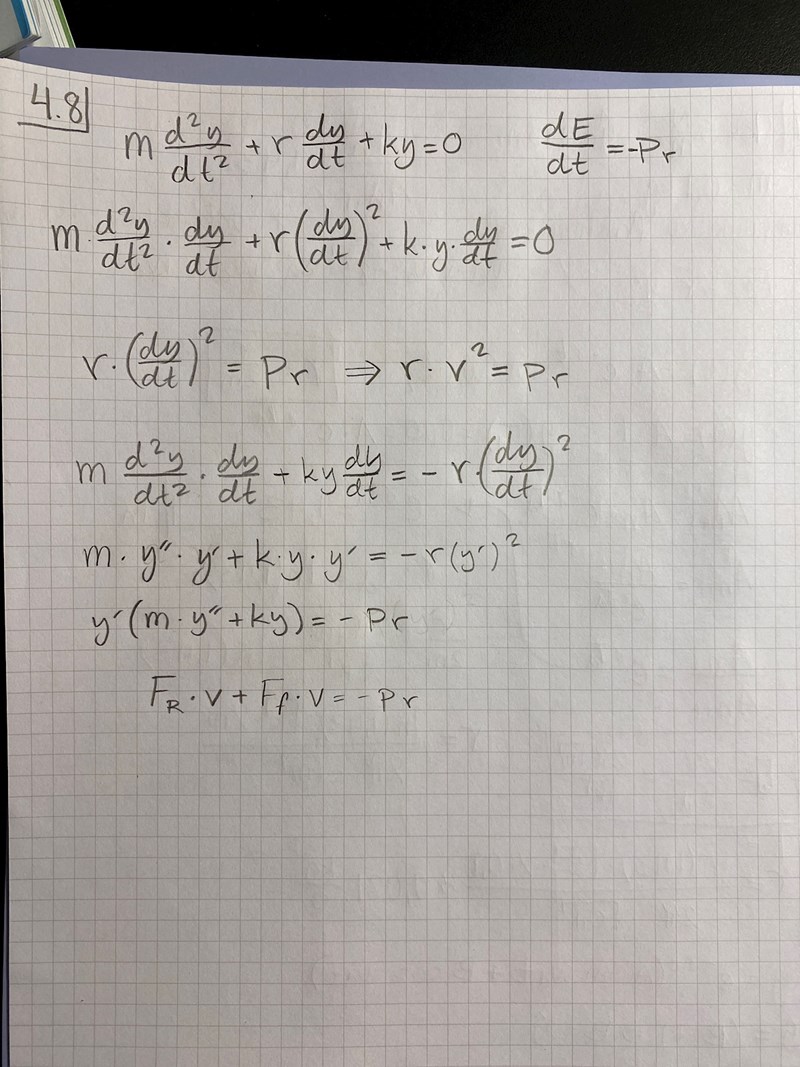 4.8
m d²y/dt² + r dy/dt + ky = 0 dE/dt = -Pr
m · d²y/dt² · dy/dt + r(dy/dt)² + k · y · dy/dt = 0
r · (dy/dt)² = Pr ⇒ r · v² = Pr
m d²y/dt² · dy/dt + ky dy/dt = - r · (dy/dt)²
m · y″ · y′ + k · y · y′ = -r(y′)²
y′(m · y″ + ky) = - Pr
F_R · v + F_f · v = - Pr